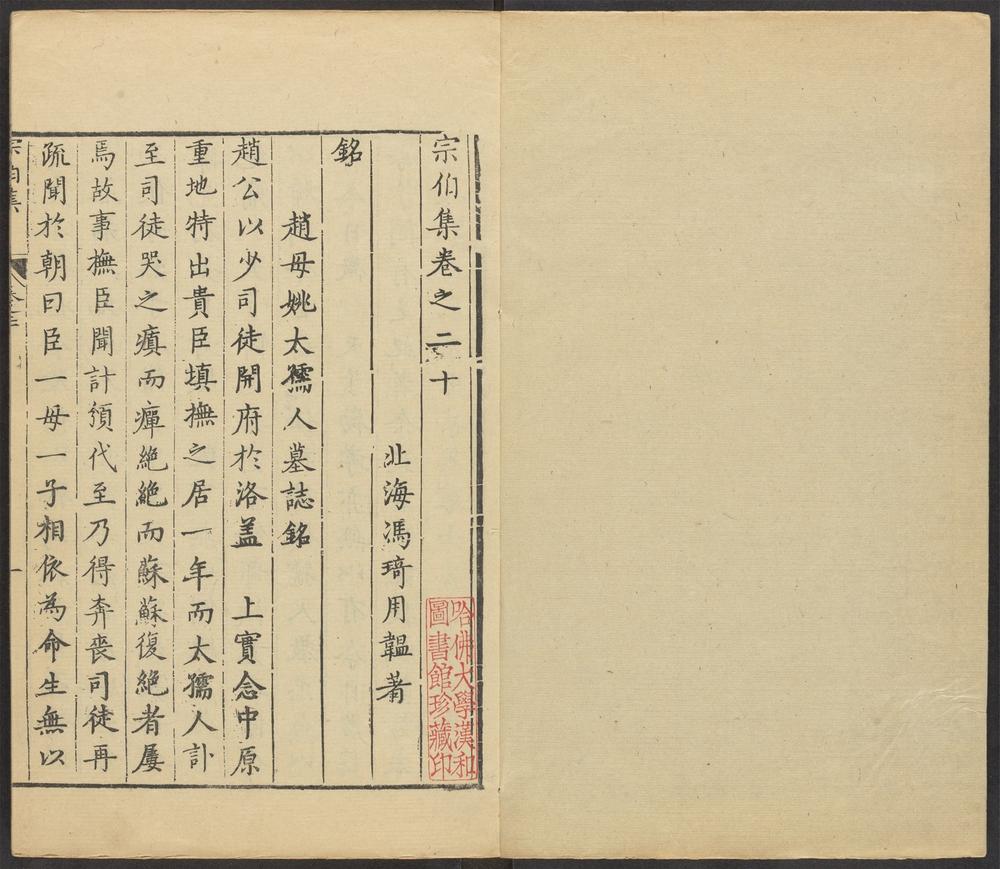 宗伯集卷之二十
北海馮琦用韞著
銘
趙母姚太孺人墓誌銘
趙公以少司徒開府於洛盖　上實念中原
重地特出貴臣填撫之居一年而太孺人訃
至司徒哭之瘨而癉絶絶而蘇蘇復絶者屢
焉故事撫臣聞訃須代至乃得奔喪司徒再
疏聞於朝曰臣一母一子相依為命生無以
宗伯集
一
哈佛大學漢和
圖書館珍藏印